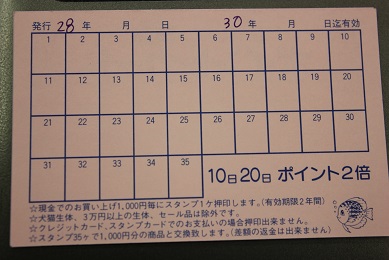 発行 28年 月 日 30年 月 日迄有効
1 2 3 4 5 6 7 8 9 10
11 12 13 14 15 16 17 18 19 20
21 22 23 24 25 26 27 28 29 30
31 32 33 34 35
10日20日 ポイント2倍
☆現金でのお買い上げ1,000円毎にスタンプ1ケ押印します。(有効期限2年間)
☆犬猫生体、3万円以上の生体、セール品は除外です。
☆クレジットカード、スタンプカードでのお支払いの場合押印出来ません。
☆スタンプ35ヶで1,000円分の商品と交換致します。(差額の返金は出来ません)